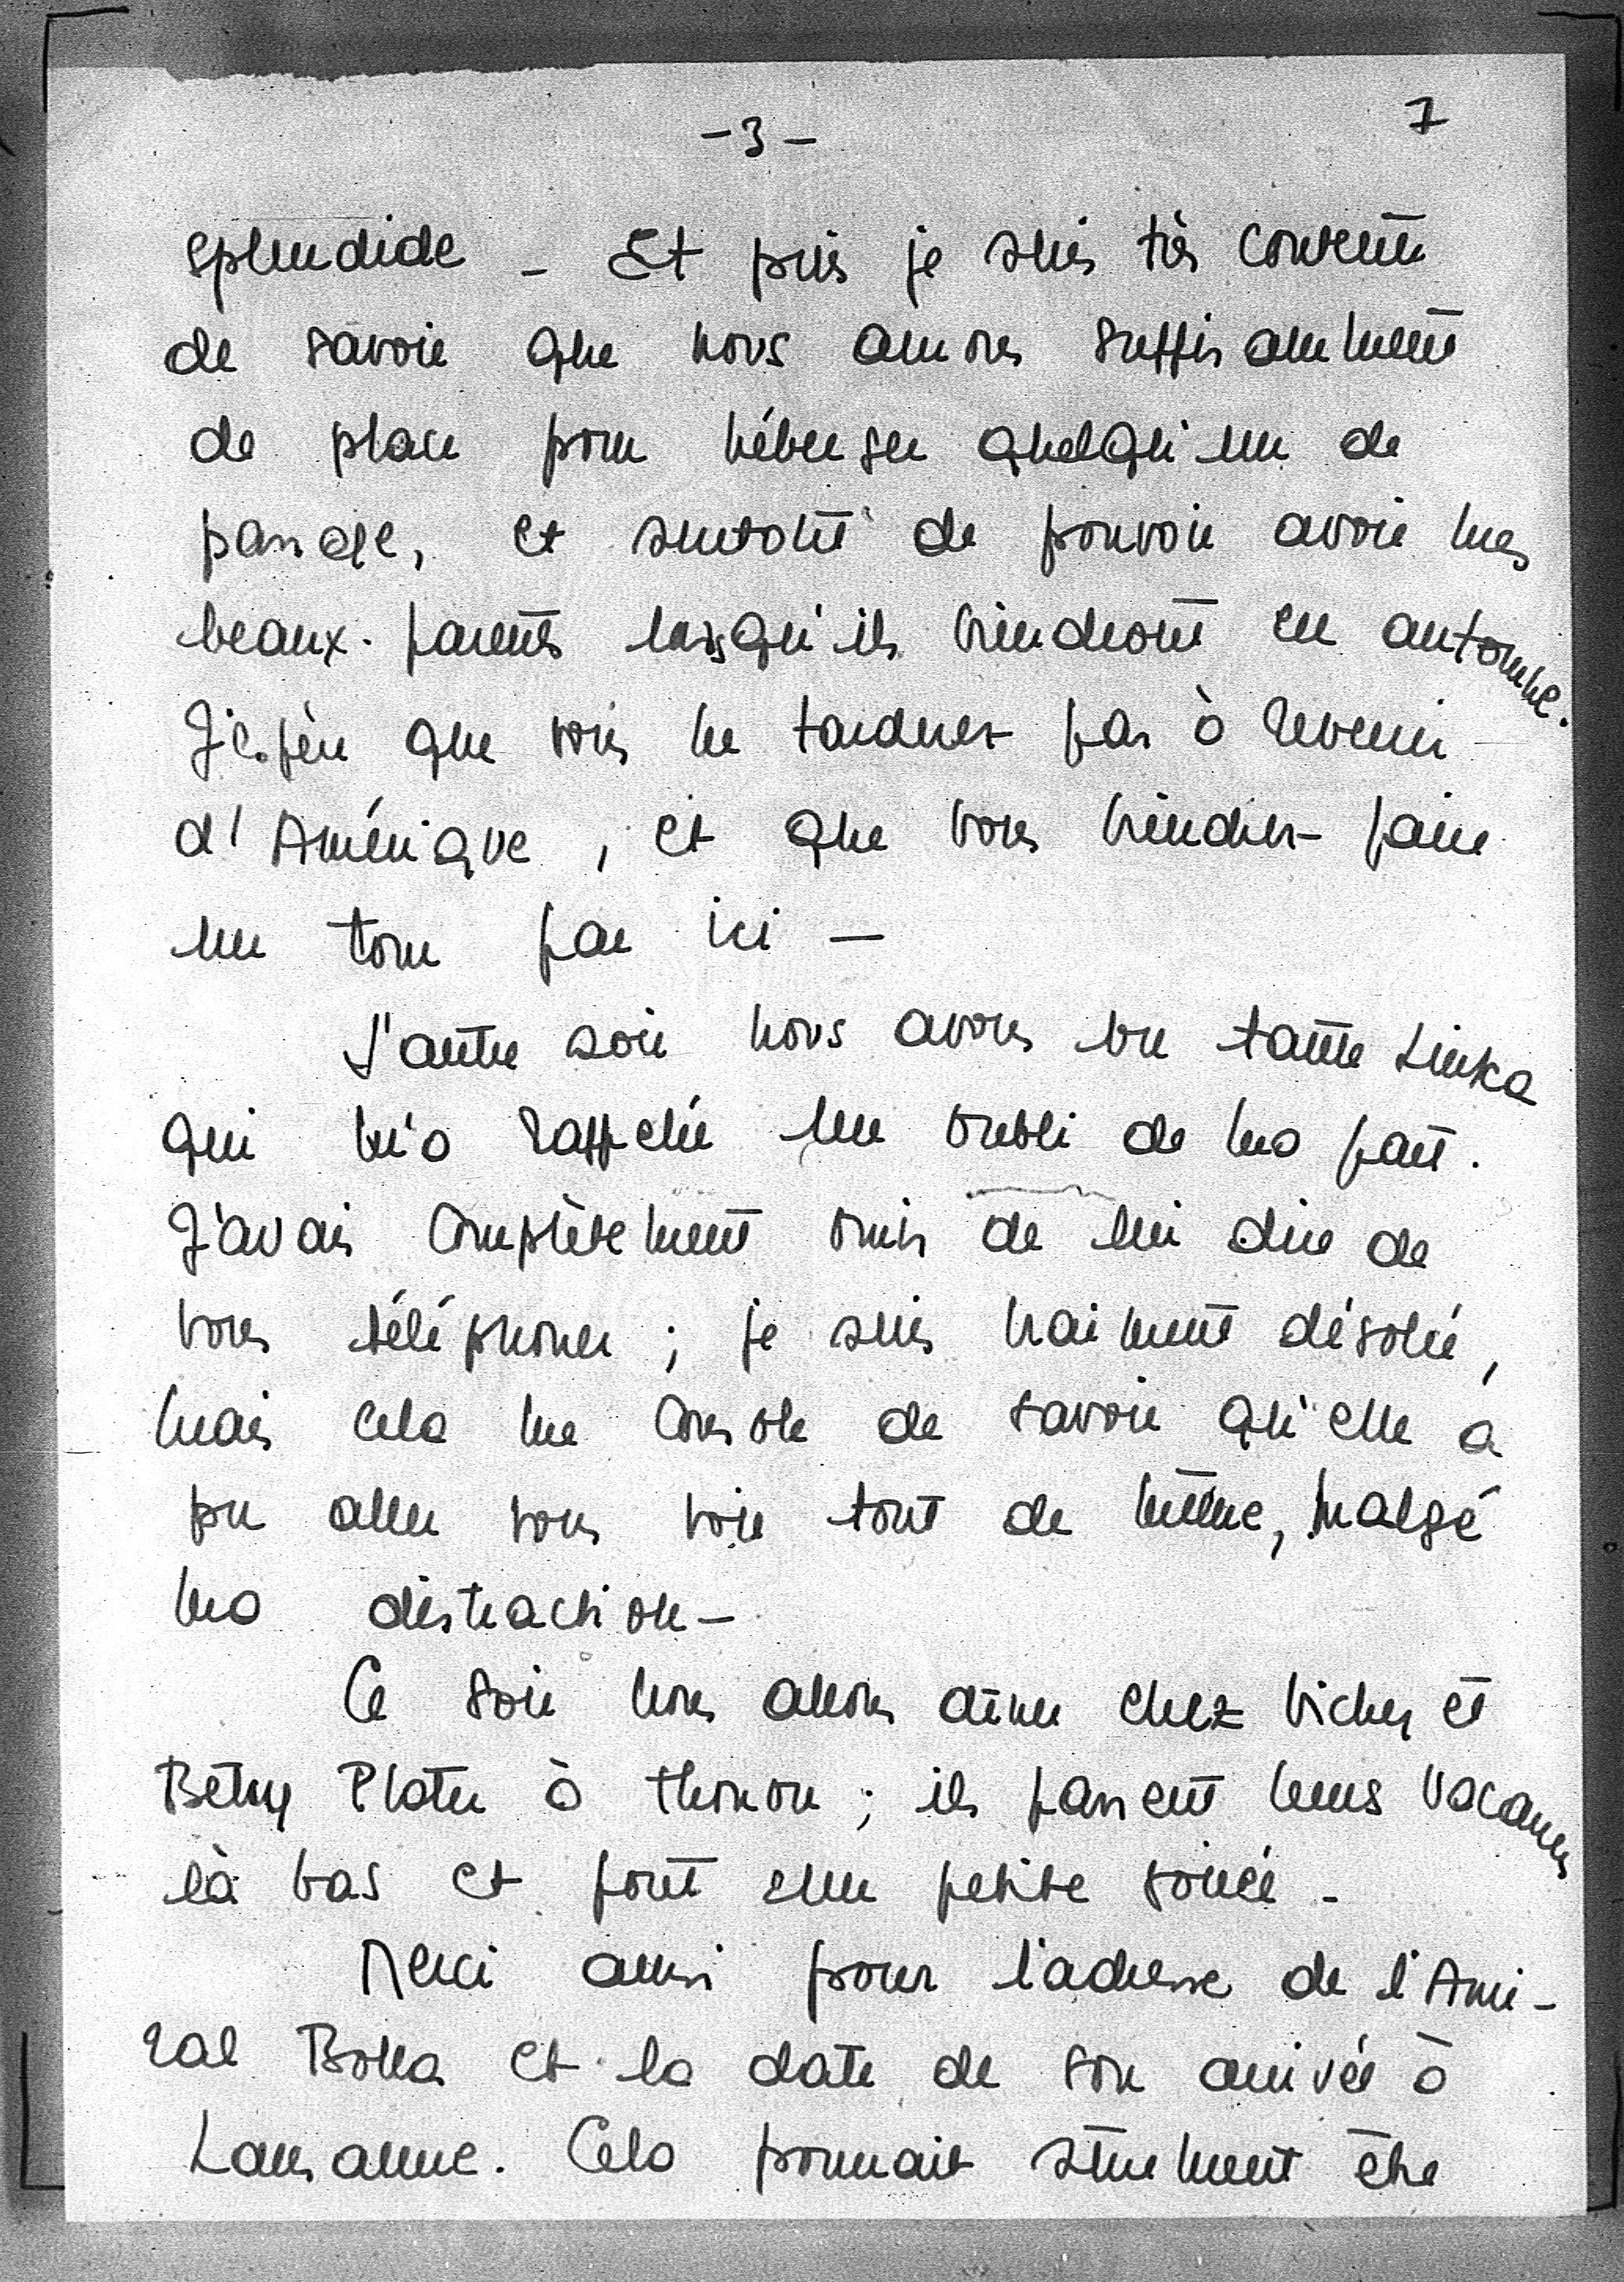 - 3 -
7
splendide - Et puis je suis très content
de savoir que nous aurons suffisamment
de place pour héberger quelqu'un de
passage, et surtout de pouvoir avoir mes
beaux-parents lorsqu'ils viendront en automne.
J'espère que vous ne tarderez pas à revenir
d'Amérique, et que vous viendrez faire
un tour par ici —
L'autre soir nous avons vu tante Linka
qui m'a rappelé un oubli de ma part.
J'avais complètement omis de lui dire de
vous téléphoner ; je suis vraiment désolé,
mais cela me console de savoir qu'elle a
pu aller vous voir tout de même, malgré
ma distraction —
Ce soir nous allons dîner chez Vicky et
Betsy Plater à Thonon ; ils passent leurs vacances
là bas et font une petite soirée -
Merci aussi pour l'adresse de l'Ami-
ral et la date de son arrivée à
Lausanne. Cela pourrait sûrement être